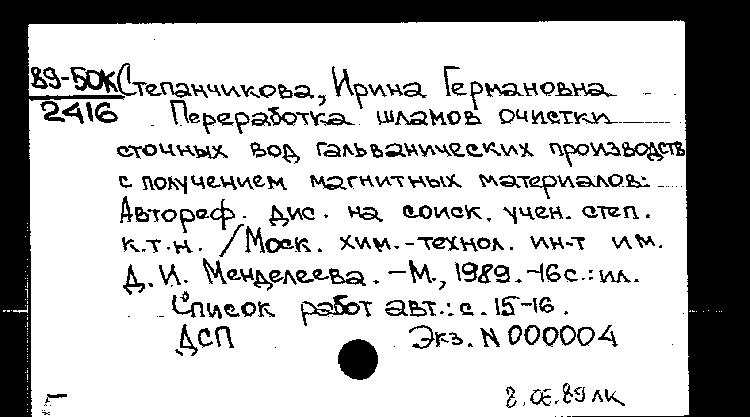 89-50К Степанчикова, Ирина Германовна
2416 Переработка шламов очистки
сточных вод гальванических производств
с получением магнитных материалов:
Автореф. дис. на соиск. учен. степ.
к.т.н. /Моск. хим.-технол. ин-т им.
Д. И. Менделеева. -М., 1989.-16с.:ил.
Список работ авт.: с. 15-16.
ДСП Экз. N 000004